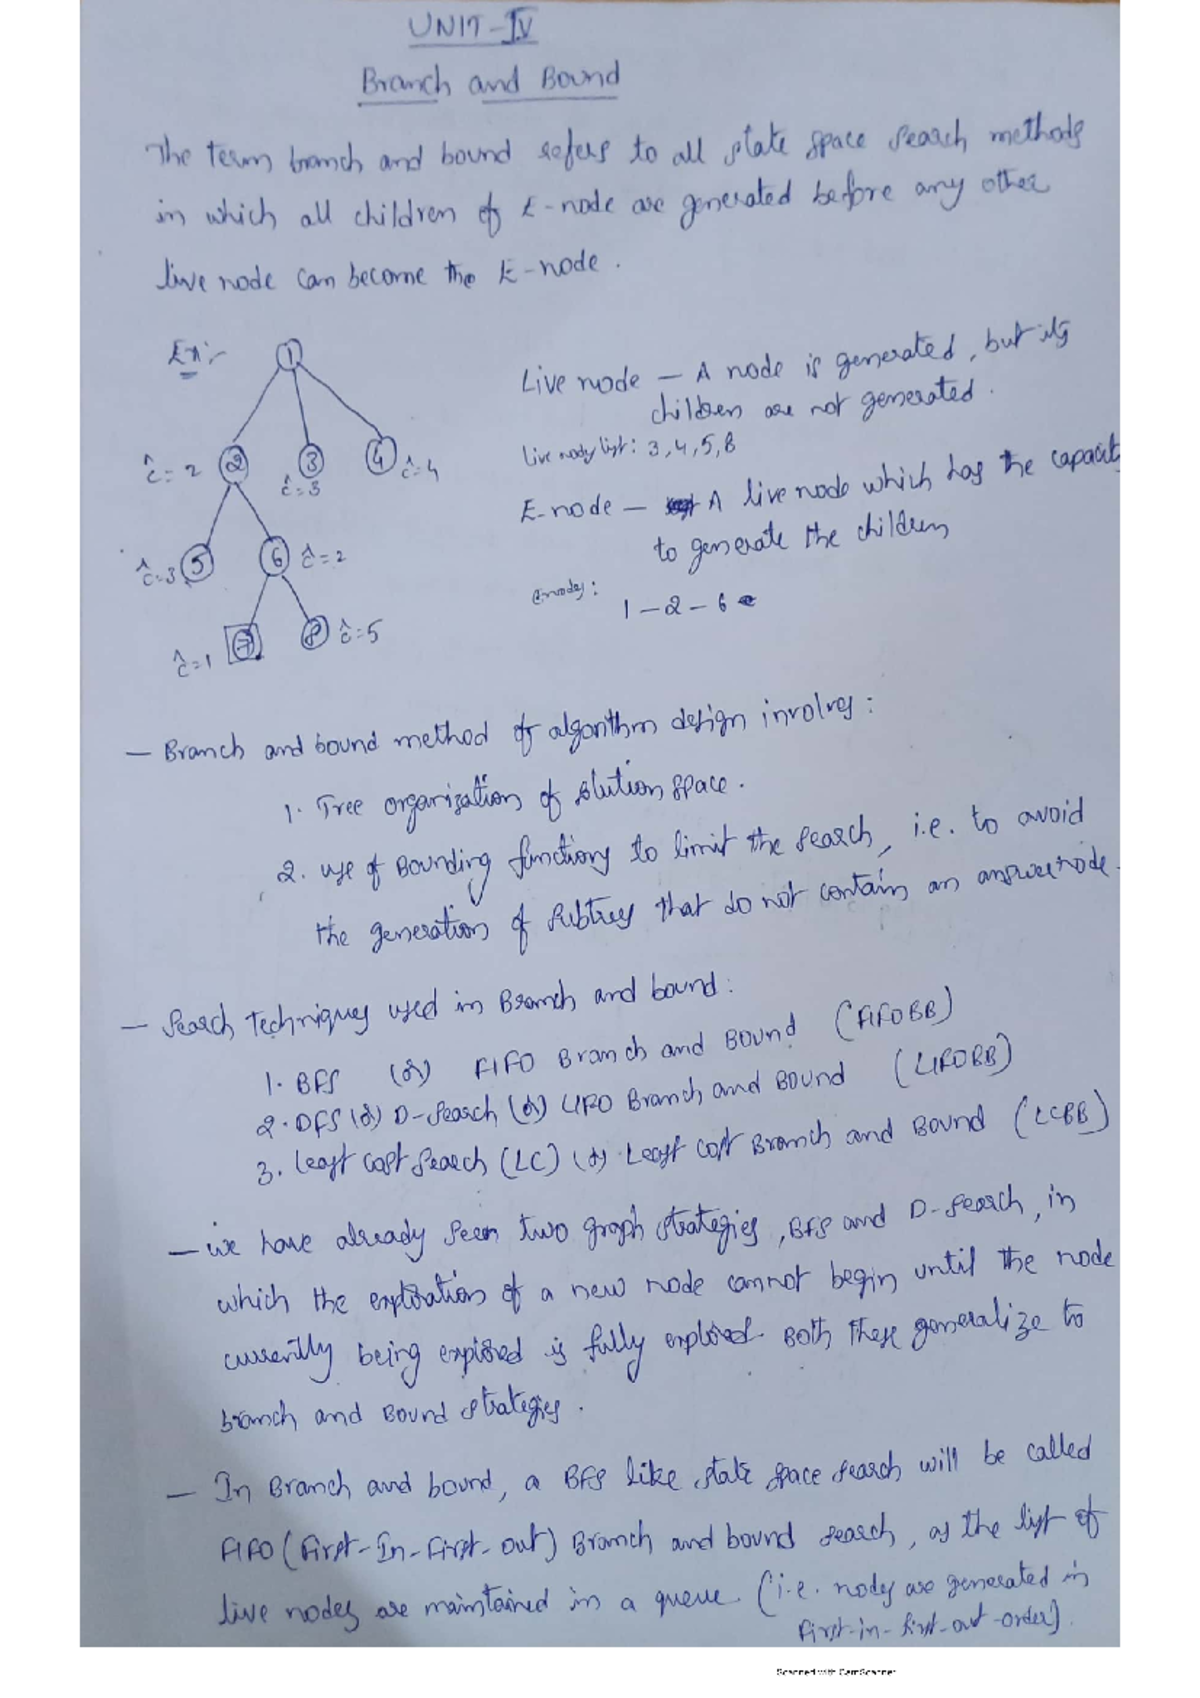 UNIT-IV
Branch and Bound
The term branch and bound refers to all state space search methods
in which all children of E-node are generated before any other
live node can become the E-node.
Ex:-
1
ĉ=2 2 3 4 ĉ=4
ĉ=3
ĉ=3 5 6 ĉ=2
ĉ=1 7 8 ĉ=5
Live node - A node is generated, but its
children are not generated.
Live nodes list: 3,4,5,8
E-node - A live node which has the capacity
to generate the children
enodes:
1-2-6
- Branch and bound method of algorithm design involves:
1. Tree organization of solution space.
2. use of Bounding functions to limit the search, i.e. to avoid
the generation of subtrees that do not contain an answer node.
- Search techniques used in Branch and bound:
1. BFS (or) FIFO Branch and Bound (FIFOBB)
2. DFS (or) D-Search (or) LIFO Branch and Bound (LIFOBB)
3. Least cost search (LC) (or) Least cost Branch and Bound (LCBB)
- we have already seen two graph strategies, BFS and D-search, in
which the exploration of a new node cannot begin until the node
currently being explored is fully explored. Both these generalize to
branch and Bound strategies.
- In Branch and bound, a BFS like state space search will be called
FIFO (First-In-First-out) Branch and bound search, as the list of
live nodes are maintained in a queue. (i.e. nodes are generated in
first-in-first-out-order).
Scanned with CamScanner